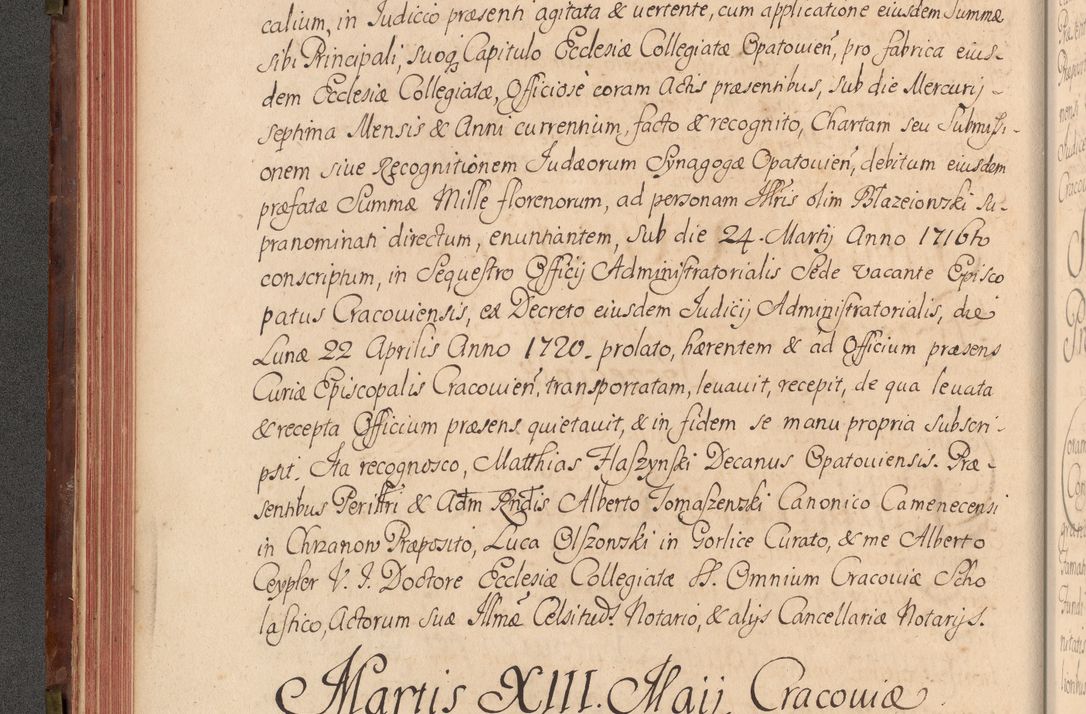 calium, in Judicio præsenti agitata & vertente, cum applicatione eiusdem Summæ
sibi Principali, suoq; Capitulo Ecclesiæ Collegiatæ Opatouien, pro fabrica eius-
dem Ecclesiæ Collegiatæ, Officiosè coram Actis præsentibus, sub die Mercurij -
septima Mensis & Anni currentium, facto & recognito, Chartam seu Submissi-
onem siue Recognitionem Judæorum Synagogæ Opatouien, debitum eiusdem
præfatæ Summæ Mille florenorum, ad personam Illris olim Błazeionski Su-
pranominati directum, enuntiantem, sub die 24. Martij Anno 1716to
conscriptum, in Sequestro Officij Administratorialis Sede vacante Episco
patus Cracouiensis, ex Decreto eiusdem Judicij Administratorialis, die
Lunæ 22 Aprilis Anno 1720. prolato, hærentem & ad Officium præsens
Curiæ Episcopalis Cracouien, transportatam, leuauit, recepit, de qua leuata
& recepta Officium præsens quietauit, & in fidem se manu propria subscri-
psit. Ita recognosco, Matthias Haszynski Decanus Opatouiensis. Præ-
sentibus Perillri & Adm Rndis Alberto Tomaszenski Canonico Camenecensi
in Chrzanow Præposito, Luca Olszonski in Gorlice Curato, & me Alberto
Ceypler V. J. Doctore Ecclesiæ Collegiatæ SS. Omnium Cracouiæ Scho
lastico, Actorum suæ Illmæ Celsitud. Notario, & alijs Cancellariæ Notarijs.
Martis XIII. Maij Cracouiæ